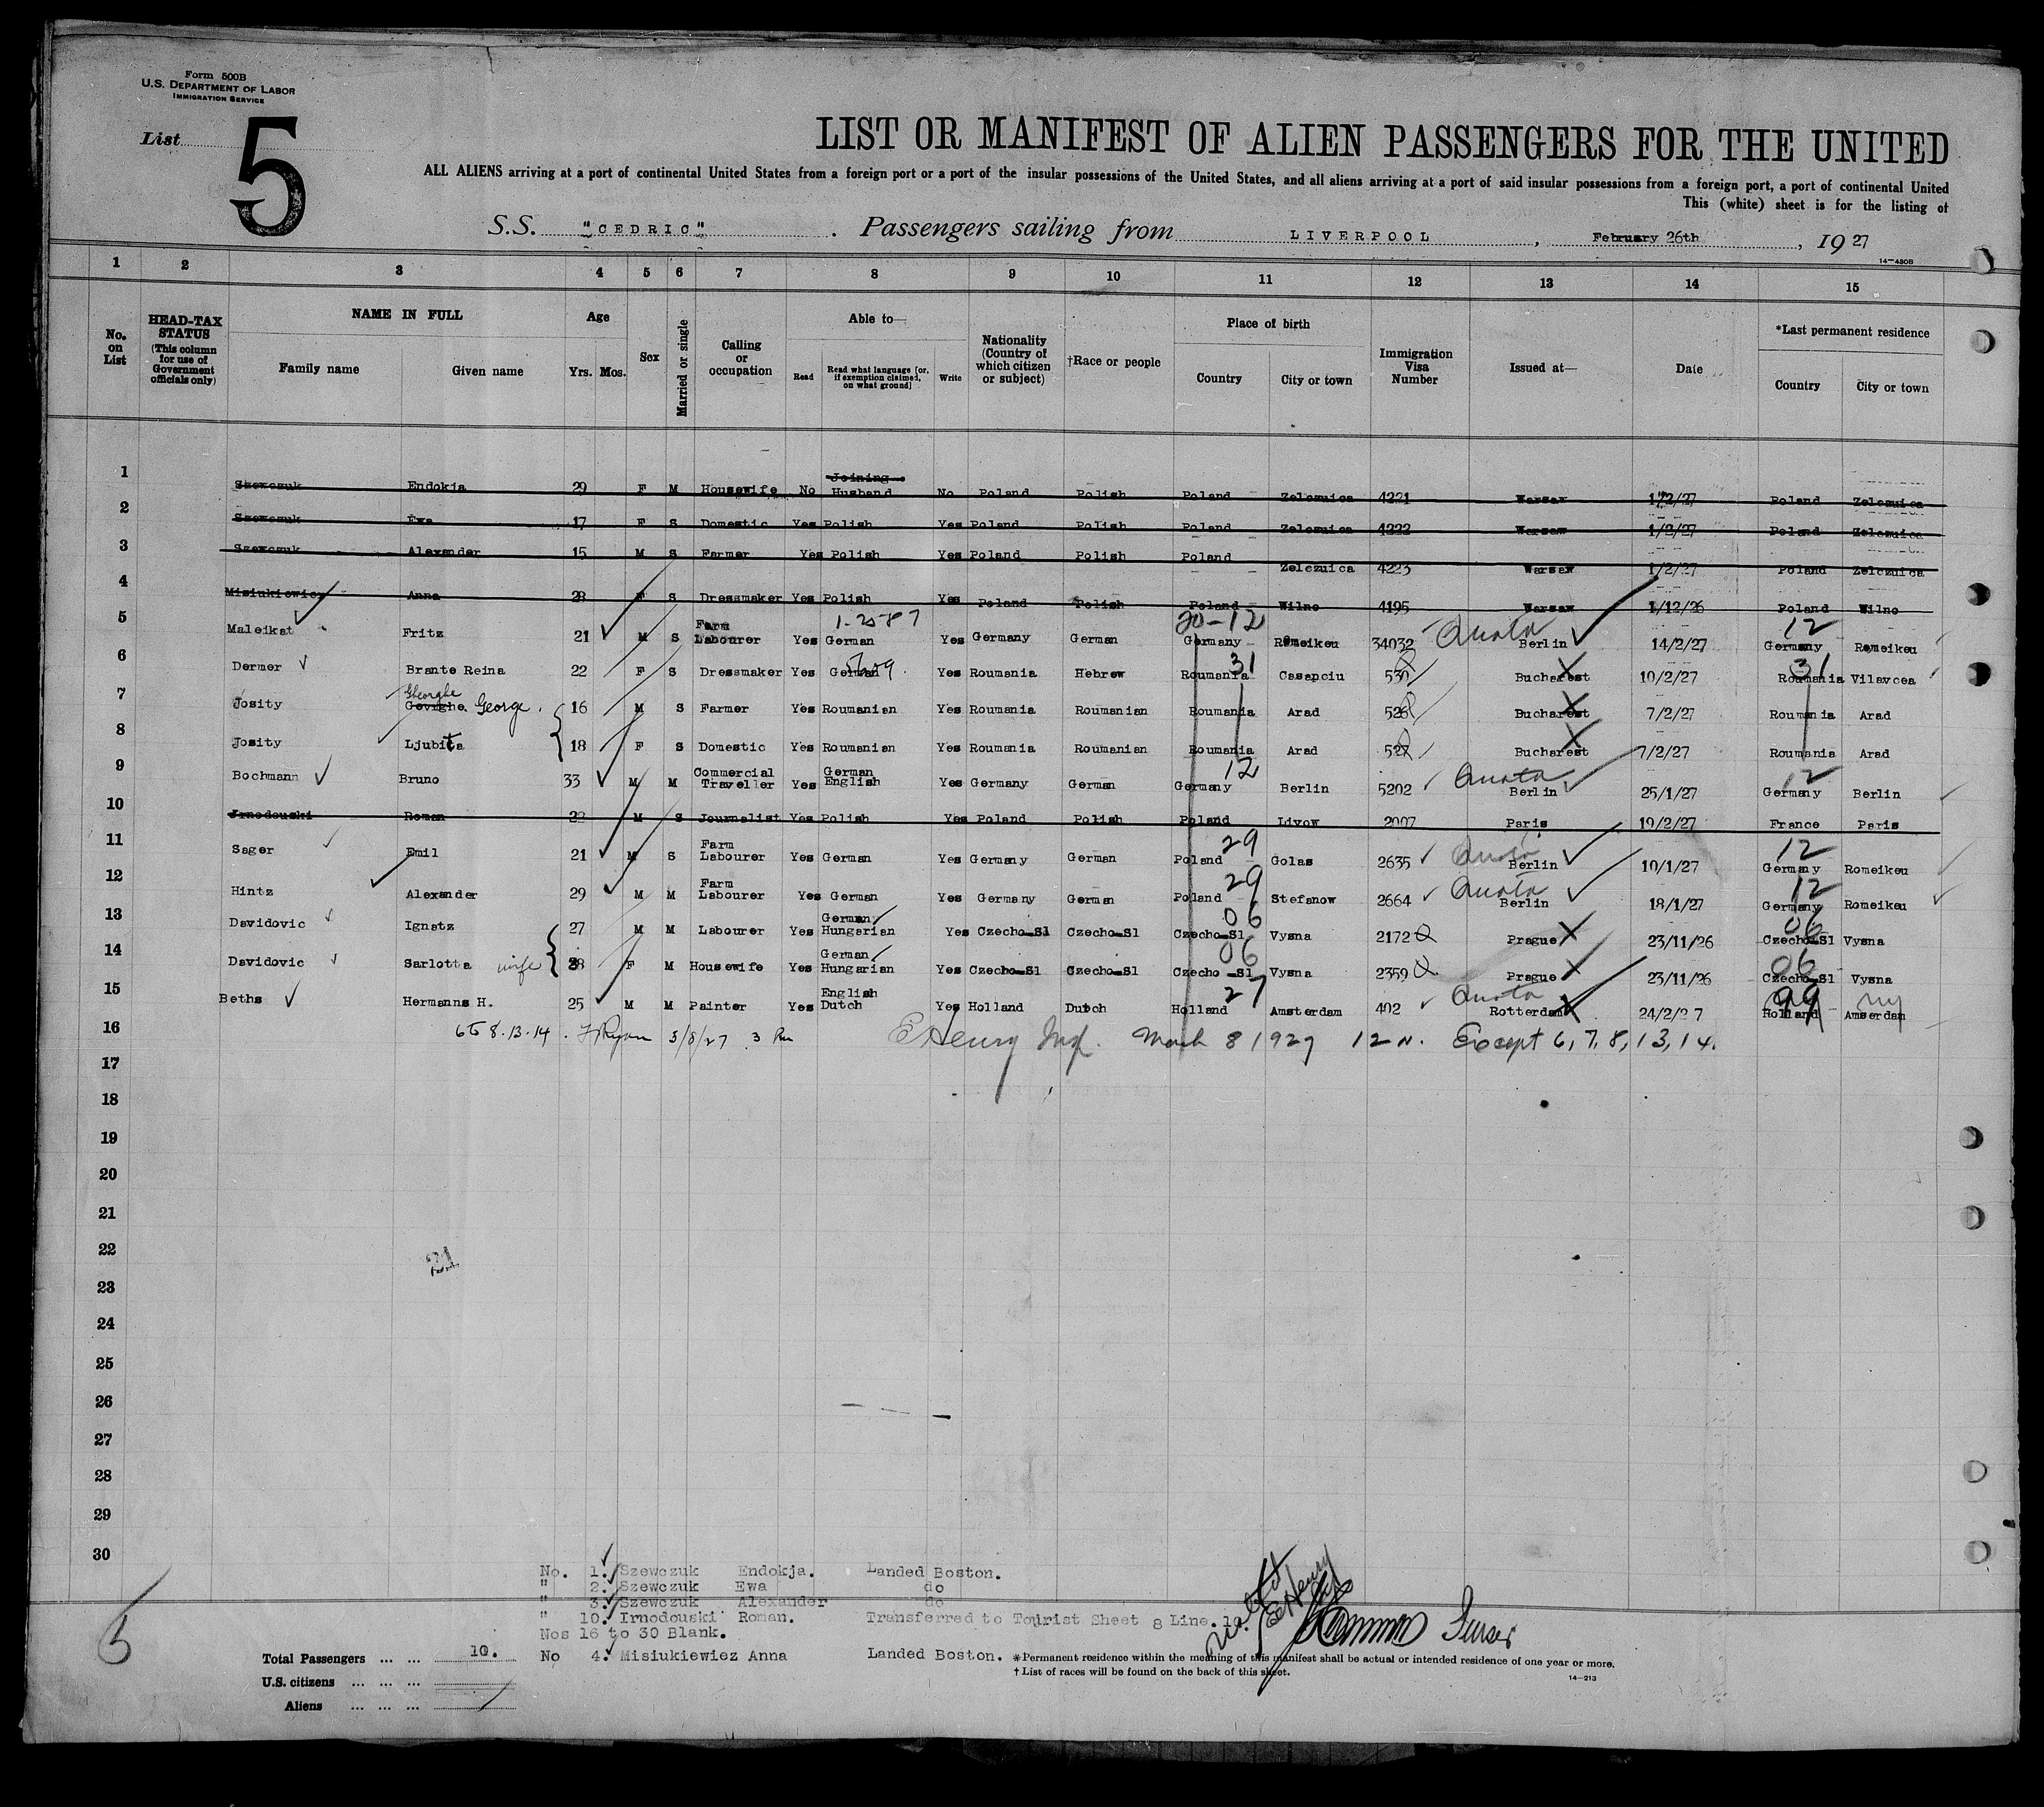 Form 500B
U.S. DEPARTMENT OF LABOR
IMMIGRATION SERVICE
List 5
LIST OR MANIFEST OF ALIEN PASSENGERS FOR THE UNITED
ALL ALIENS arriving at a port of continental United States from a foreign port or a port of the insular possessions of the United States, and all aliens arriving at a port of said insular possessions from a foreign port, a port of continental United
This (white) sheet is for the listing of
S.S. "CEDRIC" . Passengers sailing from LIVERPOOL , February 26th , 19 27
14-430B
1 2 3 4 5 6 7 8 9 10 11 12 13 14 15
No. on List
HEAD-TAX STATUS (This column for use of Government officials only)
NAME IN FULL
Family name Given name
Age
Yrs. Mos.
Sex
Married or single
Calling or occupation
Able to—
Read Read what language [or, if exemption claimed, on what ground] Write
Nationality (Country of which citizen or subject)
†Race or people
Place of birth
Country City or town
Immigration Visa Number
Issued at—
Date
*Last permanent residence
Country City or town
1 Szewczuk Endokja 29 F M Housewife No Joining Husband No Poland Polish Poland Zelczuica 4221 Warsaw 1/2/27 Poland Zelczuica
2 Szewczuk Ewa 17 F S Domestic Yes Polish Yes Poland Polish Poland Zelczuica 4222 Warsaw 1/2/27 Poland Zelczuica
3 Szewczuk Alexander 15 M S Farmer Yes Polish Yes Poland Polish Poland Zelczuica 4223 Warsaw 1/2/27 Poland Zelczuica
4 Misiukiewicz Anna 28 F S Dressmaker Yes Polish Yes Poland Polish Poland Wilno 4195 Warsaw 1/12/26 Poland Wilno
1-25-87 20-12 12
5 Maleikat Fritz 21 M S Farm Labourer Yes German Yes Germany German Germany Romeikeu 34032 Quota Berlin 14/2/27 Germany Romeikeu
6 Dermer Brante Reina 22 F S Dressmaker Yes German Yes Roumania Hebrew Roumania 31 Casapciu 530 Bucharest 10/2/27 Roumania 31 Vilavcea
Gheorghe
7 Josity Gevrghe. George. 16 M S Farmer Yes Roumanian Yes Roumania Roumanian Roumania Arad 526 Bucharest 7/2/27 Roumania Arad
8 Josity Ljubitta 18 F S Domestic Yes Roumanian Yes Roumania Roumanian Roumania Arad 527 Bucharest 7/2/27 Roumania Arad
9 Bochmann Bruno 33 M M Commercial Traveller Yes German English Yes Germany German Germany 12 Berlin 5202 Quota Berlin 25/1/27 Germany 12 Berlin
10 Irnodouski Roman 22 M S Journelist Yes Polish Yes Poland Polish Poland Livow 2007 Paris 19/2/27 France Paris
11 Sager Emil 21 M S Farm Labourer Yes German Yes Germany German Poland 29 Golas 2635 Quota Berlin 10/1/27 Germany 12 Romeikeu
12 Hintz Alexander 29 M M Farm Labourer Yes German Yes Germany German Poland 29 Stefanow 2664 Quota Berlin 18/1/27 Germany 12 Romeikeu
13 Davidovic Ignatz 27 M M Labourer Yes German Hungarian Yes Czecho-Sl Czecho-Sl Czecho-Sl 06 Vysna 2172 Prague 23/11/26 Czecho-Sl 06 Vysna
14 Davidovic Sarlotta wife 38 F M Housewife Yes German Hungarian Yes Czecho-Sl Czecho-Sl Czecho-Sl 06 Vysna 2359 Prague 23/11/26 Czecho-Sl 06 Vysna
15 Beths Hermanns H. 25 M M Painter Yes English Dutch Yes Holland Dutch Holland 27 Amsterdam 402 Quota Rotterdam 24/2/27 Holland 99 Amserdam NY
16 6 to 8. 13. 14. Ryan 3/8/27 E Henry Insp. March 8 1927 12 N. Except 6, 7, 8, 13, 14.
17
18
19
20
21
22
23
24
25
26
27
28
29
30
21
No. 1. Szewczuk Endokja. Landed Boston.
" 2. Szewczuk Ewa do
" 3. Szewczuk Alexander do
" 10. Irnodouski Roman. Transferred to Tourist Sheet 8 Line.
Nos 16 to 30 Blank.
No 4. Misiukiewiez Anna Landed Boston.
E Henry
Purser
5
Total Passengers ... ... 10.
U.S. citizens ... ... ...
Aliens ... ... ...
*Permanent residence within the meaning of this manifest shall be actual or intended residence of one year or more.
† List of races will be found on the back of this sheet.
14-213